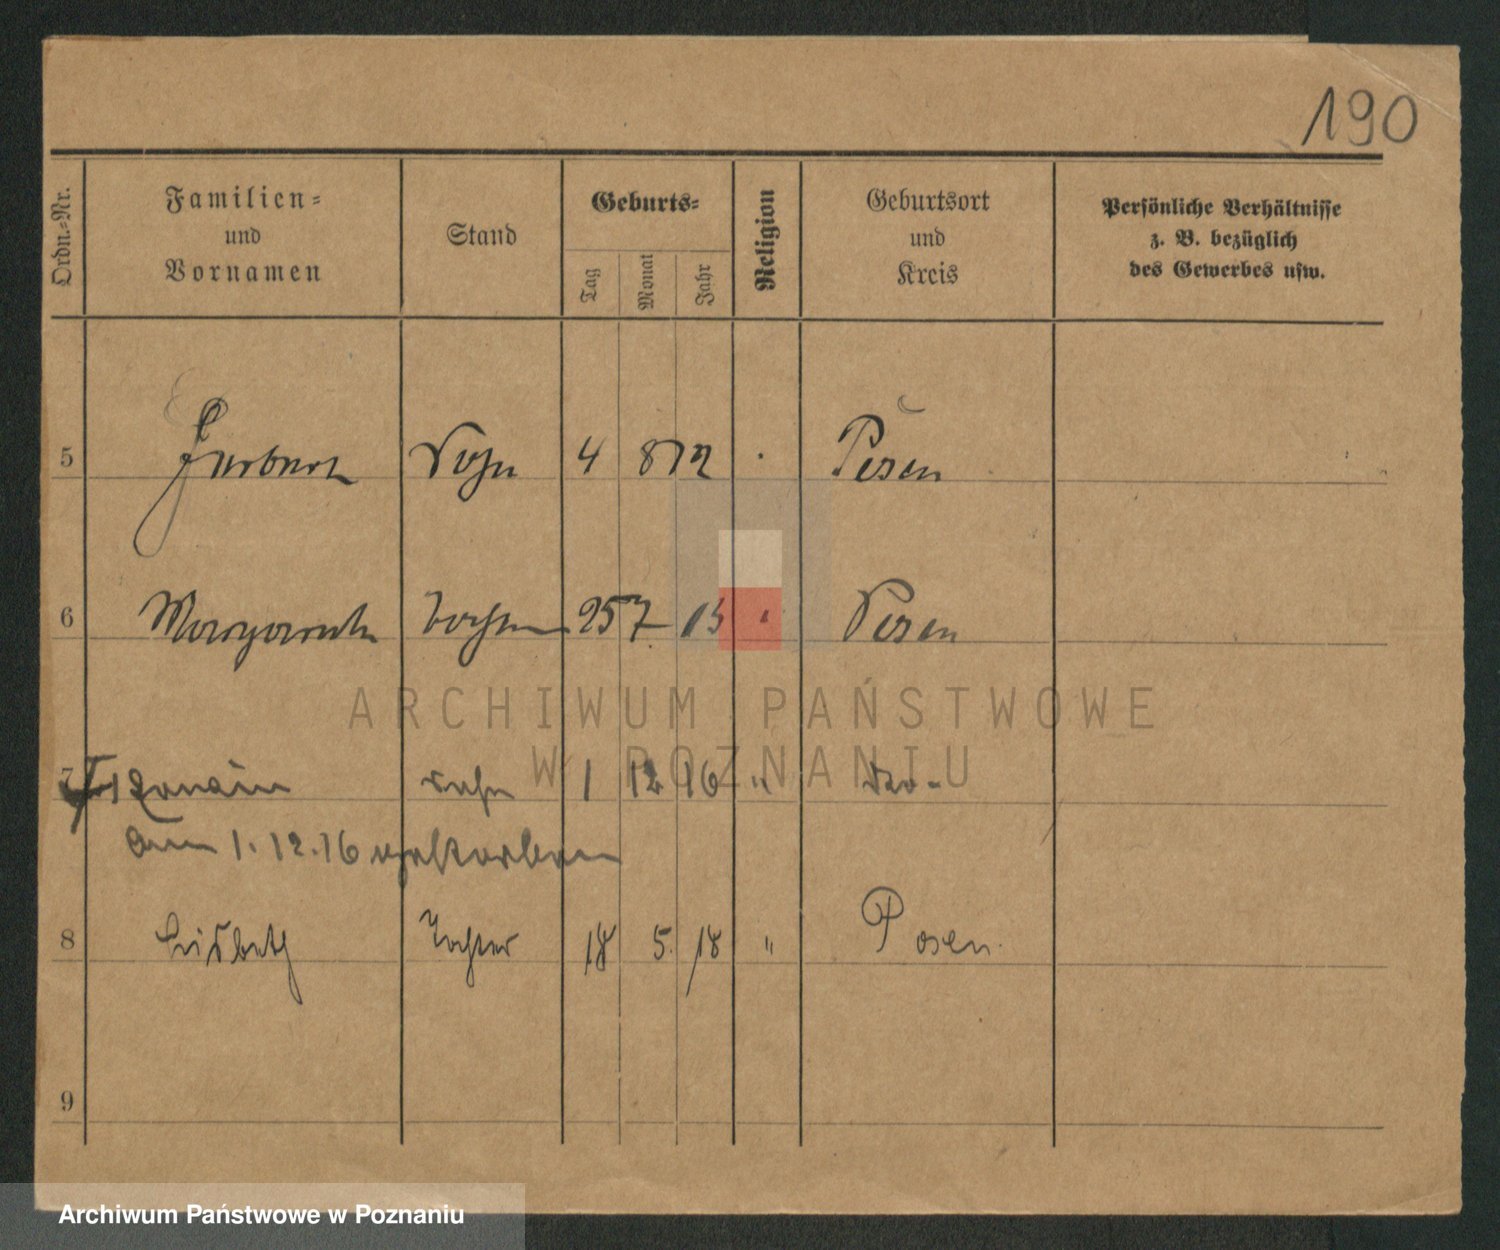 190
Ordn.=Nr.
Familien=
und
Vornamen
Stand
Geburts=
Tag
Monat
Jahr
Religion
Geburtsort
und
Kreis
Persönliche Verhältnisse
z. B. bezüglich
des Gewerbes usw.
5 Herbert Sohn 4 8 12 Posen
6 Margarete Tochter 25 7 13 " Posen
7 Sohn 1 12 16 "
am 1.12.16 verstorben
8 Lisbeth Tochter 18 5. 18 " Posen.
9
ARCHIWUM PAŃSTWOWE
W POZNANIU
Archiwum Państwowe w Poznaniu